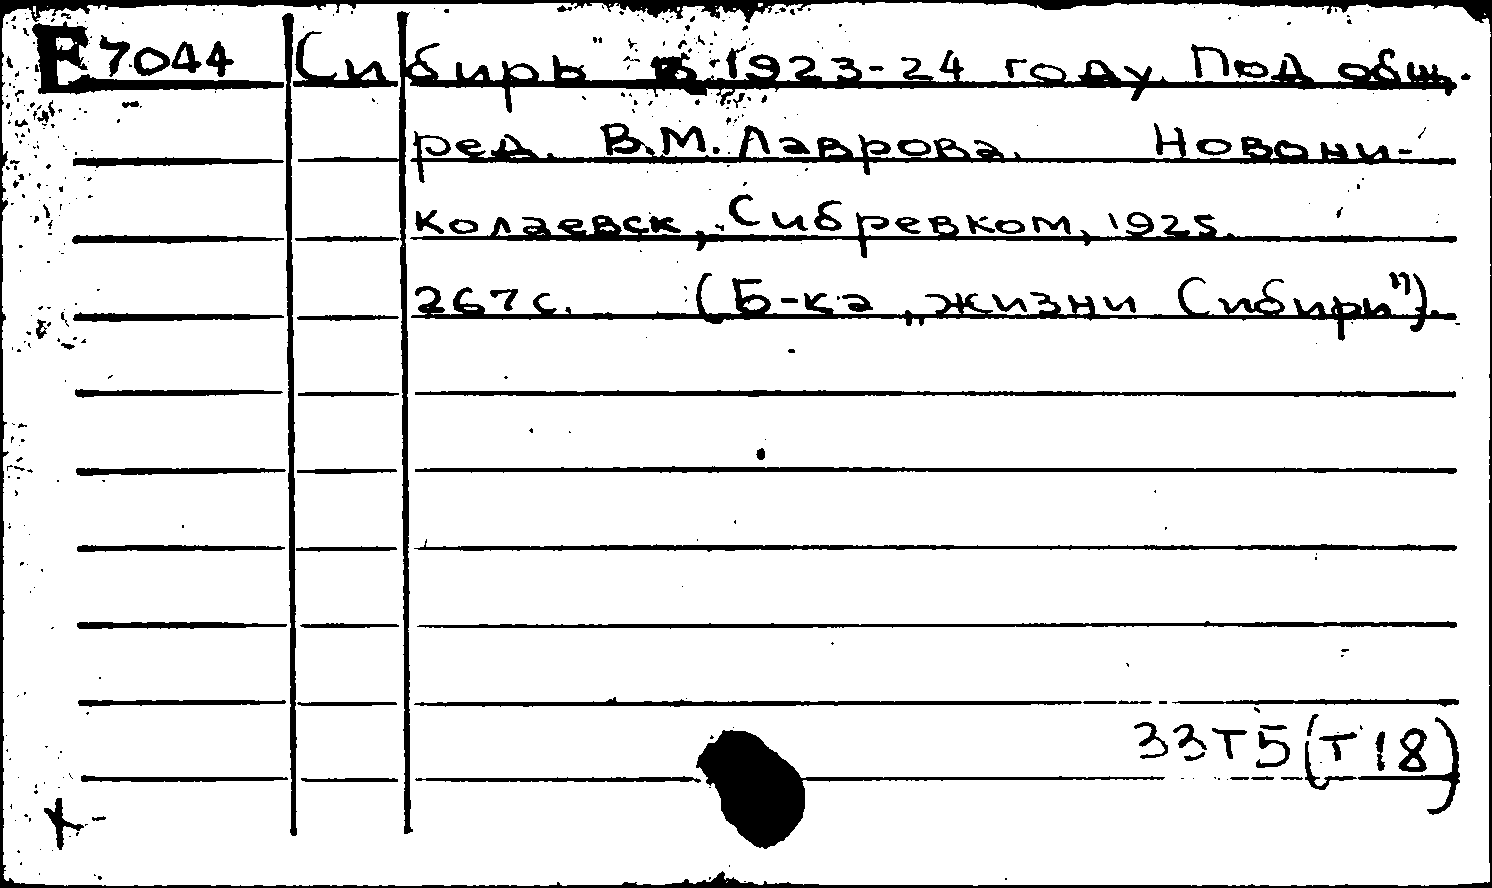 E7044 Сибирь в 1923-24 году. Под общ.
ред. В.М. Лаврова. Новони-
колаевск, Сибревком, 1925.
267 с. (Б-ка „жизни Сибири").
33Т5(Т18)